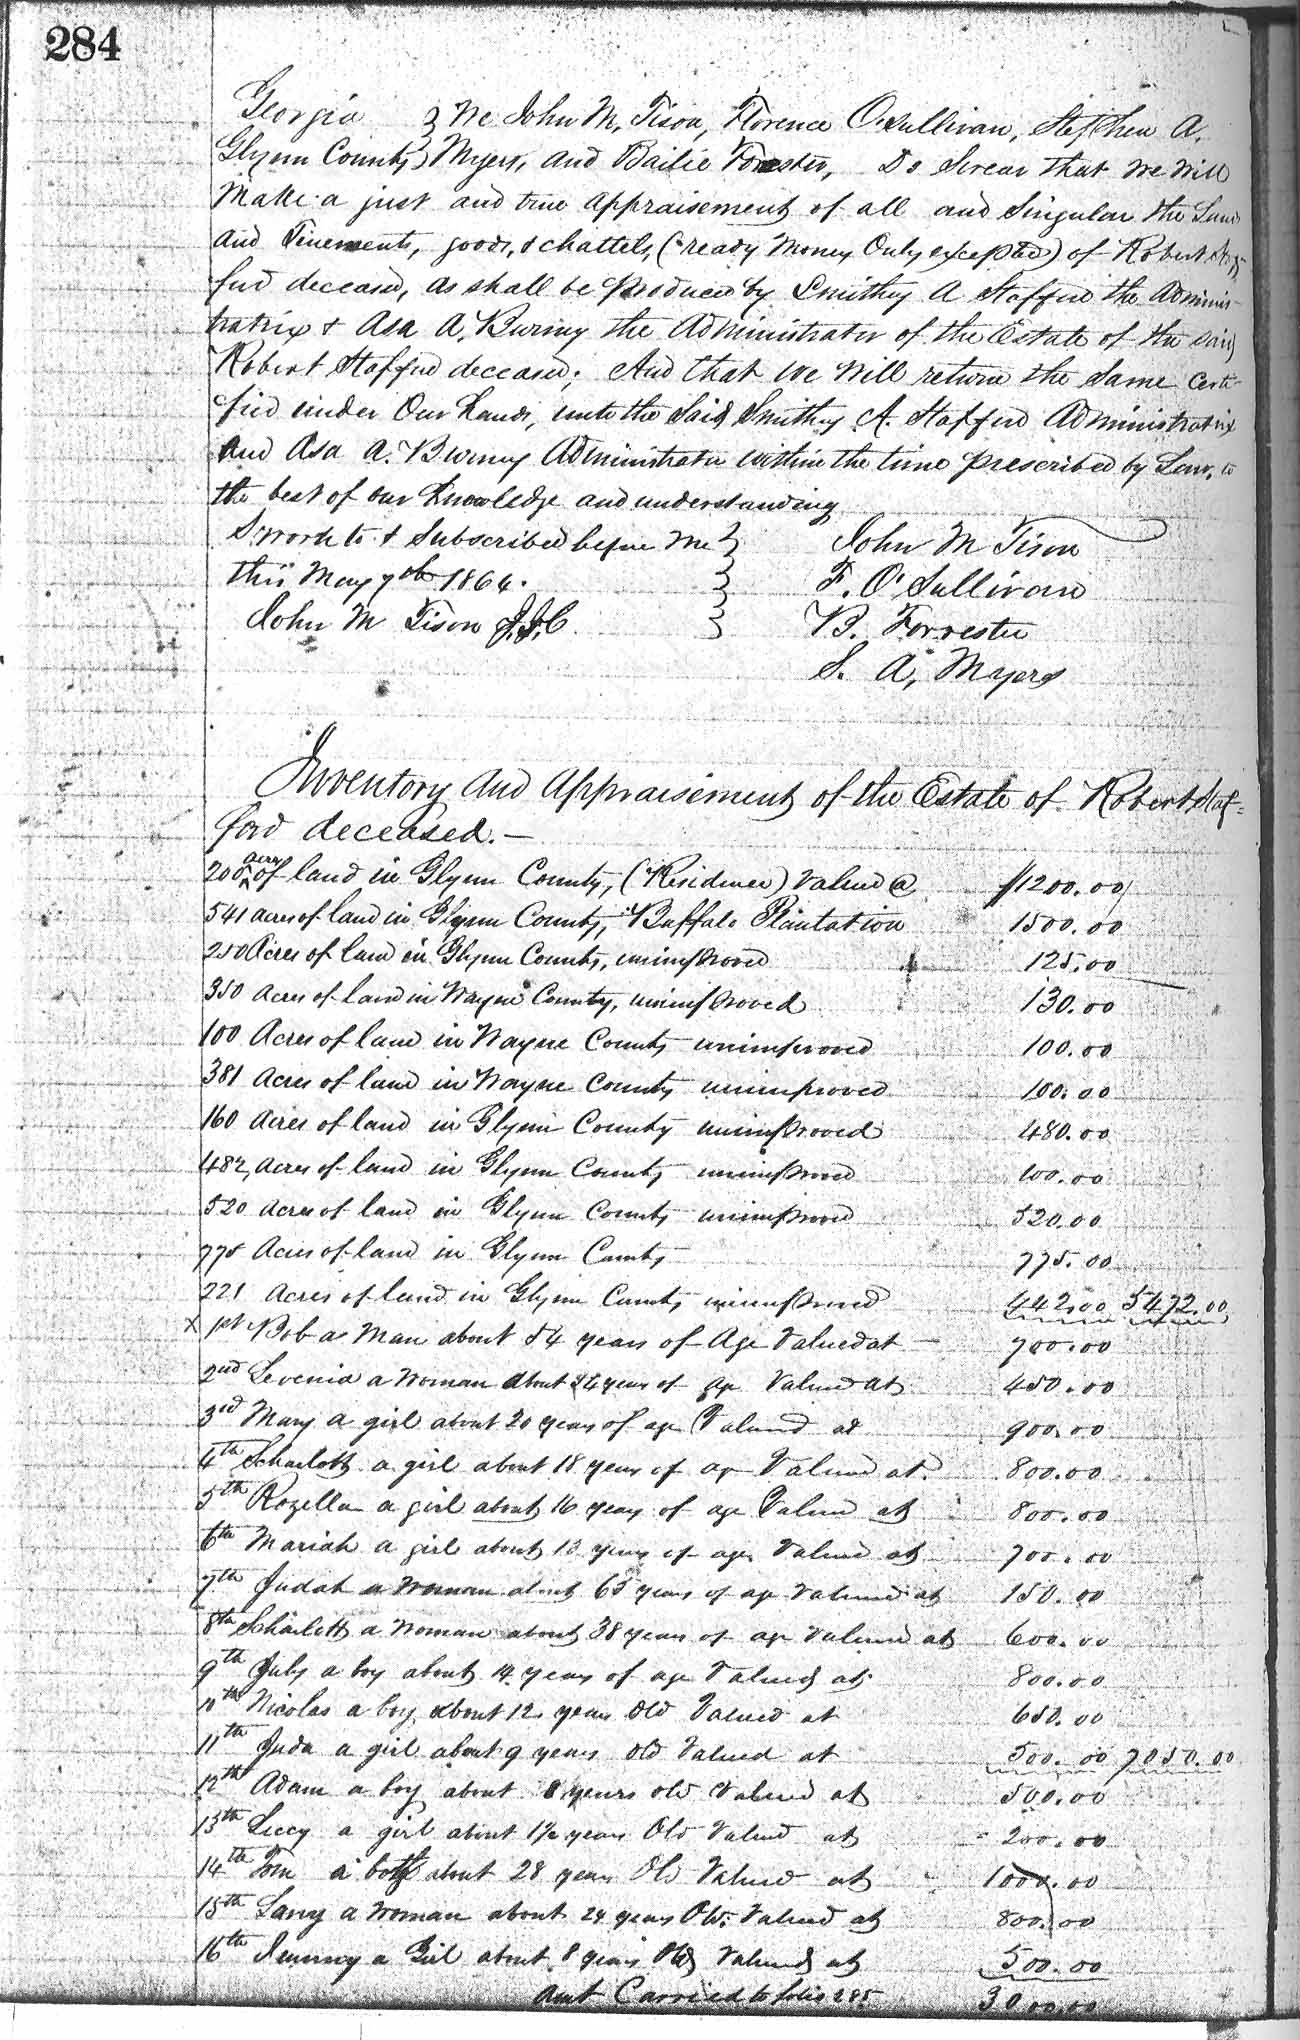 284
Georgia } We John M. Tison, Florence O.Sullivan, Stephen A.
Glynn County } Myers, and Bailie Forester, Do Swear that we will
Make a just and true appraisement of all and Singular the Lands
and Tinements, goods, & chattels, (ready Money Only excepted) of Robert Staf-
ford deceased, as shall be produced by Smithey A Stafford the Adminis-
tratrix & Asa A. the Administrator of the Estate of the said
Robert Stafford deceased; And that we will return the Same Certi-
fied under Our hands, unto the Said Smithey A. Stafford Administratrix
And Asa A. Administrator within the time prescribed by Law, to
the best of our Knowledge and understanding
Sworn to & Subscribed before me } John M Tison
this May 7th 1864. } F. O'Sullivan
John M Tison J.I.C. } B. Forrester
S. A. Myers
Inventory and Appraisement of the Estate of Robert Staf-
ford deceased.—
200 acres of land in Glynn County, (Residence) Valued @ $1200.00
541 acres of land in Glynn County, Buffalo Plantation 1500.00
250 Acres of land in Glynn County, unimproved 125.00
350 Acres of land in Wayne County, unimproved 130.00
100 Acres of land in Wayne County unimproved 100.00
381 Acres of land in Wayne County unimproved 100.00
160 Acres of land in Glynn County unimproved 480.00
482, Acres of land in Glynn County unimproved 100.00
520 Acres of land in Glynn County unimproved 520.00
775 Acres of land in Glynn County 775.00
221 Acres of land in Glynn County unimproved 442.00 5472.00
X 1st Bob a Man about 54 years of Age Valued at — 700.00
2nd Levenia a Woman about years of age Valued at 450.00
3rd Mary a girl about 20 years of age Valued at 900.00
4th Scharlott a girl about 18 years of age Valued at 800.00
5th Rozella a girl about 16 years of age Valued at 800.00
6th Mariah a girl about 13 years of age Valued at 700.00
7th Judah a Woman about 65 years of age Valued at 150.00
8th Scharlott a Woman about 38 years of age Valued at 600.00
9th July a boy about 14 years of age Valued at 800.00
10th Nicolas a boy about 12 years old Valued at 650.00
11th Juda a girl about 9 years old Valued at 500.00 7050.00
12th Adam a boy about 8 years old Valued at 500.00
13th Liccy a girl about 1½ years Old Valued at 200.00
14th Tom a boy about 28 years Old Valued at 1000.00
15th a Woman about 24 years Old Valued at 800.00
16th a Girl about 8 years Old Valued at 500.00
Amt Carried to folio 285 3000.00